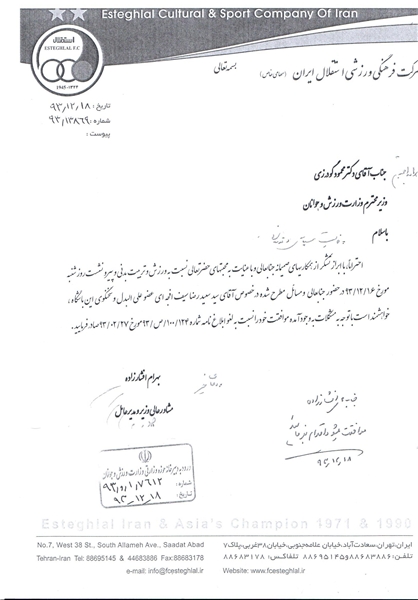 Esteghlal Cultural & Sport Company Of Iran
شرکت فرهنگی ورزشی استقلال ایران (سهامی خاص)
بسمه تعالی
استقلال
ESTEGHLAL F.C
تاریخ: ۹۳,۱۲,۱۸
شماره: ۹۳/۱۳۸۶۹
پیوست:
جناب آقای دکتر محمود گودرزی
وزیر محترم وزارت ورزش و جوانان
باسلام
احتراماً، با ابراز تشکر از همکاریهای صمیمانه جنابعالی و با عنایت به محبتهای حضرتعالی نسبت به ورزش و تربیت بدنی و پیرو نشست روز شنبه
مورخ ۹۳/۱۲/۱۶ در حضور جنابعالی و مسائل مطرح شده در خصوص آقای سید سعیدرضا سیف افجه ای عضو علی البدل و سخنگوی این باشگاه،
خواهشمند است با توجه به مشکلات به وجود آمده موافقت خود را نسبت به لغو ابلاغ نامه شماره ۱۰۰/۱۲۴/ص/۹۳ مورخ ۹۳/۰۲/۲۷ صادر فرمایید.
بهرام افشارزاده
مشاور عالی وزیر و مدیرعامل
جناب آقای افشارزاده
موافقت میشود اقدام
۹۳,۱۲,۱۸
ورود به دبیرخانه حوزه وزارتی وزارت ورزش و جوانان
شماره:
تاریخ: ۹۳,۱۲,۱۸
Esteghlal Iran & Asia's Champion 1971 & 1990
No.7, West 38 St., South Allameh Ave., Saadat Abad
ایران، تهران، سعادت آباد، خیابان علامه جنوبی، خیابان ۳۸ غربی، پلاک ۷
Tehran-Iran Tel: 88695145 & 44683886 Fax:88683178
تلفن: ۸۸۶۸۳۸۸۶-۸۸۶۹۵۱۴۵ تلفاکس: ۸۸۶۸۳۱۷۸
e-mail: info@fcesteghlal.ir
Website: www.fcesteghlal.ir